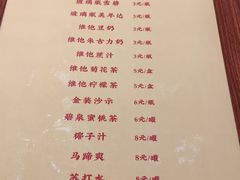 玻璃瓶雪碧 3元/瓶
玻璃瓶美年达 3元/瓶
维他豆奶 5元/瓶
维他朱古力奶 5元/瓶
维他蔗汁 5元/瓶
维他菊花茶 5元/盒
维他柠檬茶 5元/盒
金装沙示 6元/瓶
碧泉蜜桃茶 6元/罐
椰子汁 8元/罐
马蹄爽 8元/罐
苏打水 8元/罐